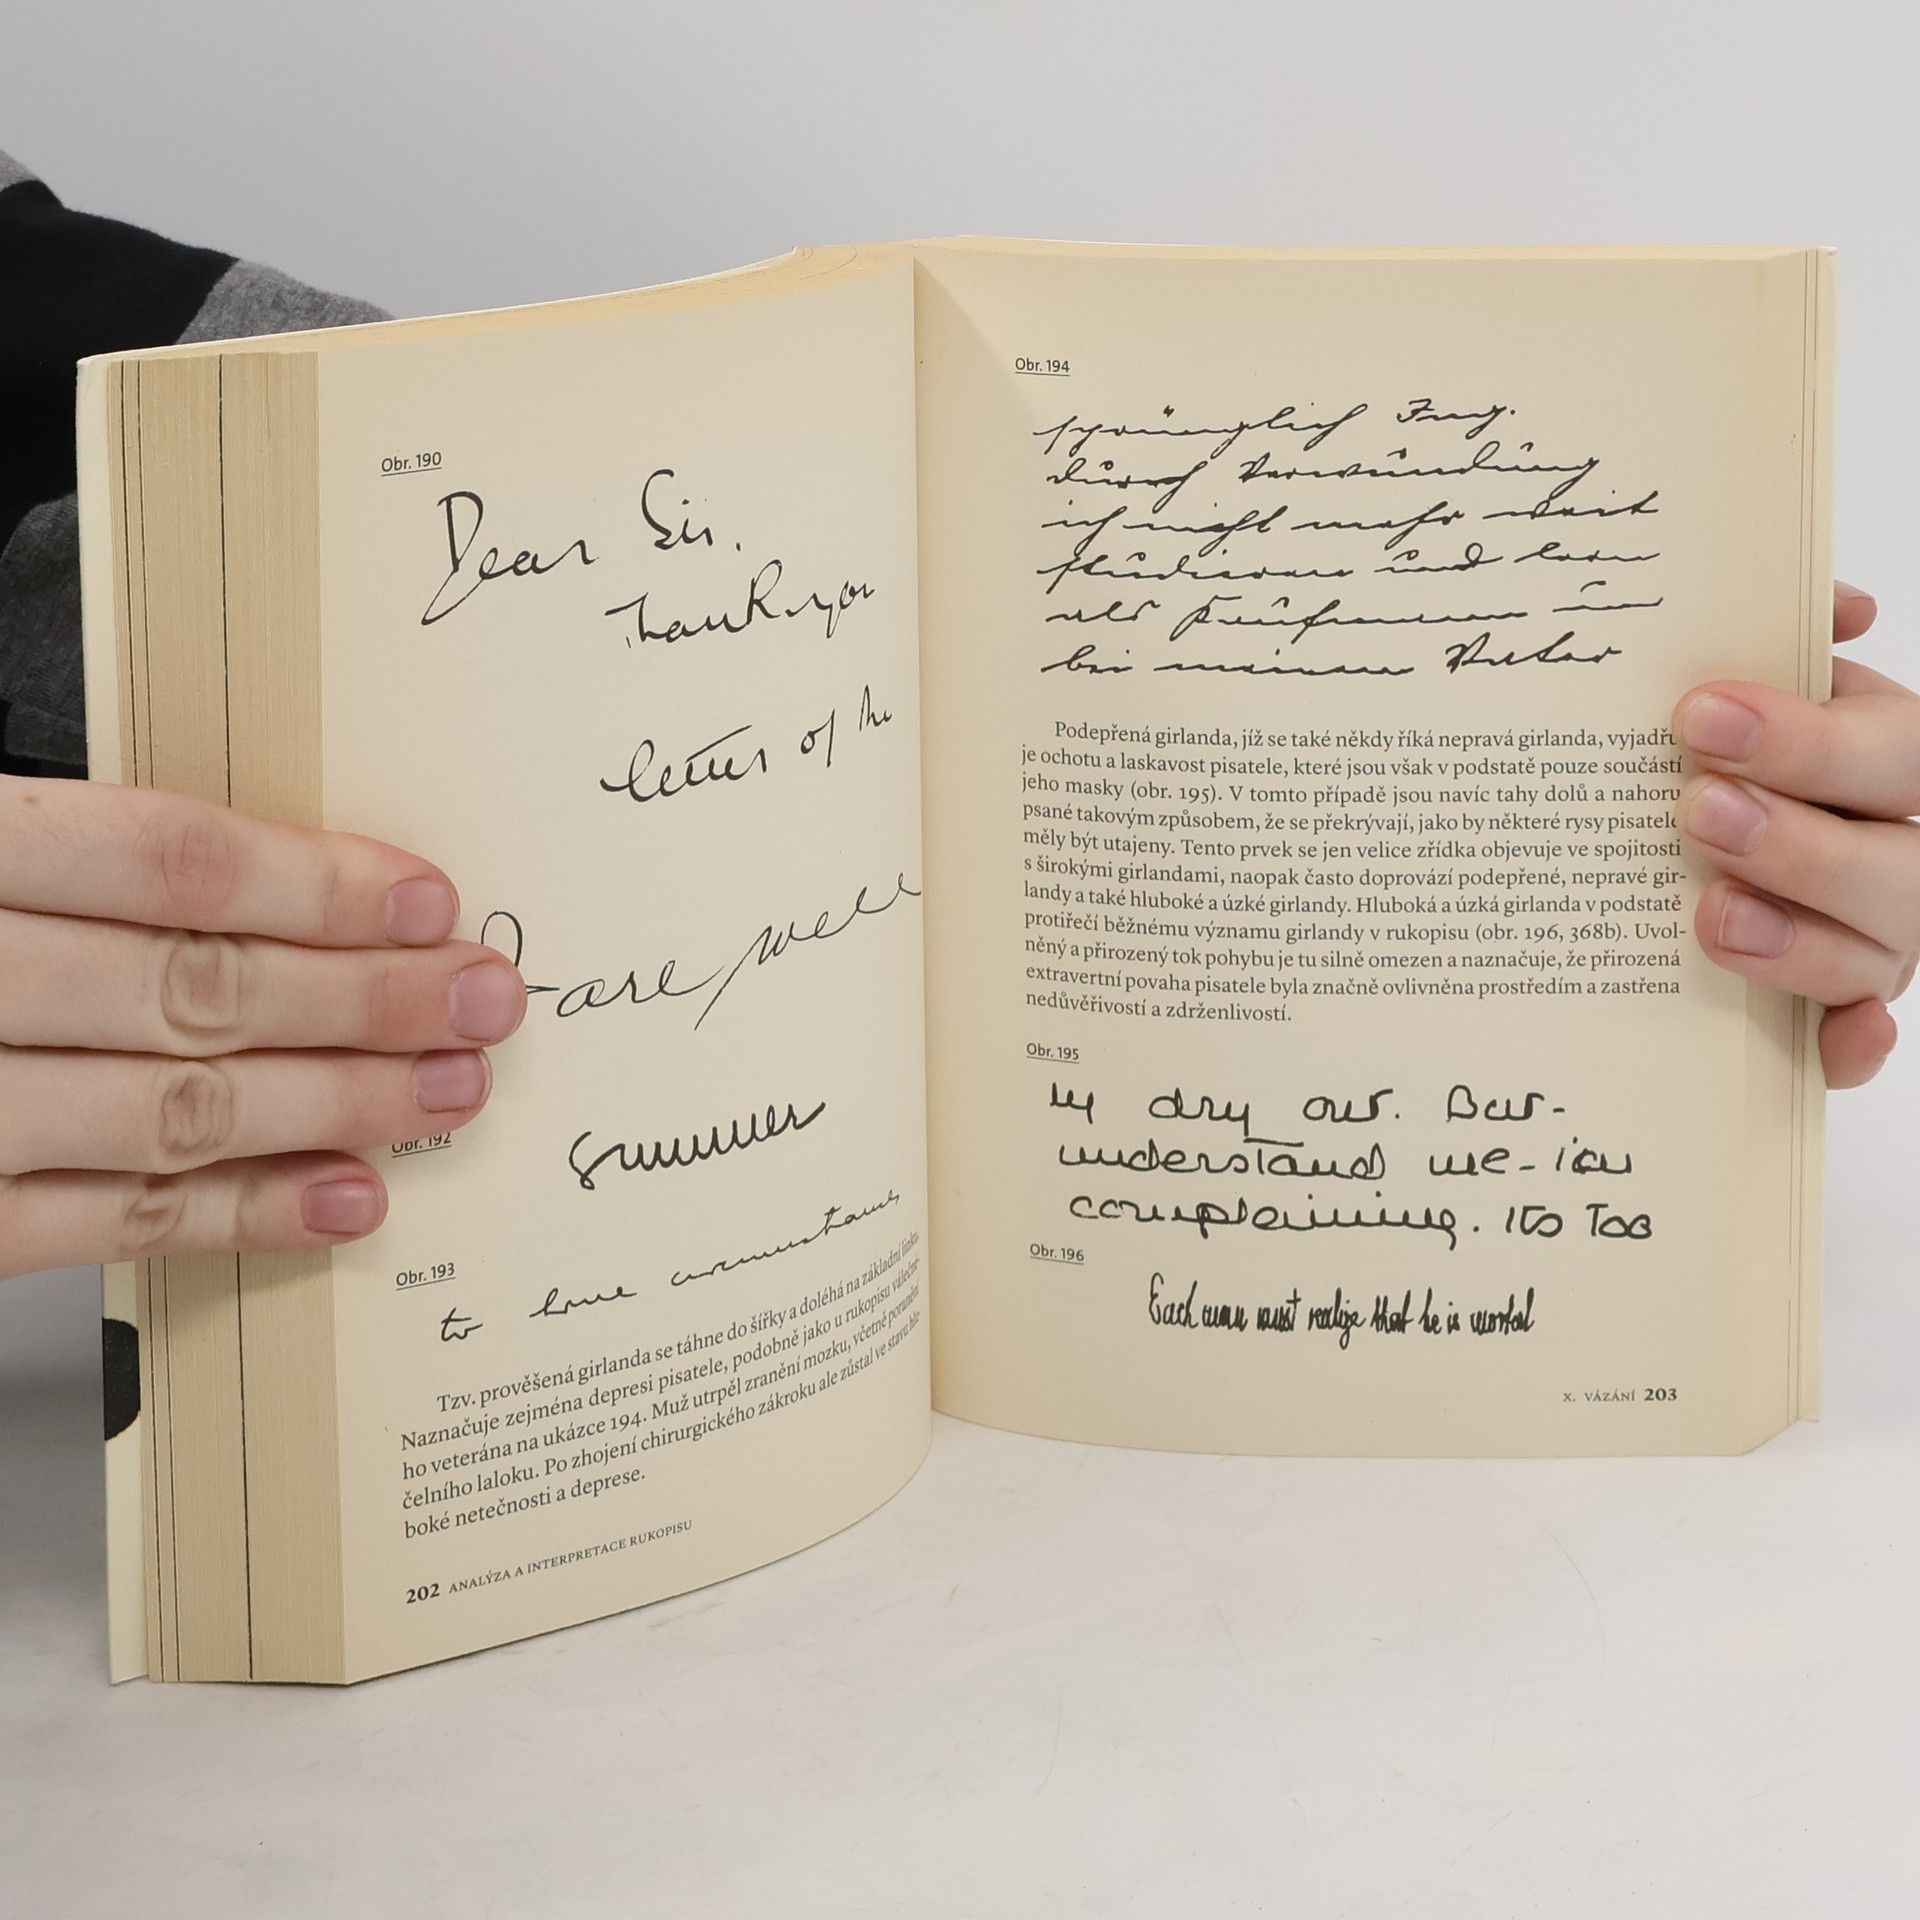 Obr. 190
Dear Sir,
Thank you
letter of the
Farewell
Obr. 192
summer
Obr. 193
to have circumstances
Tzv. prověšená girlanda se táhne do šířky a doléhá na základní linku.
Naznačuje zejména depresi pisatele, podobně jako u rukopisu válečné-
ho veterána na ukázce 194. Muž utrpěl zranění mozku, včetně poranění
čelního laloku. Po zhojení chirurgického zákroku ale zůstal ve stavu hlu-
boké netečnosti a deprese.
202 ANALÝZA A INTERPRETACE RUKOPISU
Obr. 194
sprünglich Ing.
durch Verwundung
ich nicht mehr weit
studieren und lern
als Kaufmann im
bei meinem Vater
Podepřená girlanda, jíž se také někdy říká nepravá girlanda, vyjadřu
je ochotu a laskavost pisatele, které jsou však v podstatě pouze součástí
jeho masky (obr. 195). V tomto případě jsou navíc tahy dolů a nahoru
psané takovým způsobem, že se překrývají, jako by některé rysy pisatele
měly být utajeny. Tento prvek se jen velice zřídka objevuje ve spojitosti
s širokými girlandami, naopak často doprovází podepřené, nepravé gir-
landy a také hluboké a úzké girlandy. Hluboká a úzká girlanda v podstatě
protiřečí běžnému významu girlandy v rukopisu (obr. 196, 368b). Uvol-
něný a přirozený tok pohybu je tu silně omezen a naznačuje, že přirozená
extravertní povaha pisatele byla značně ovlivněna prostředím a zastřena
nedůvěřivostí a zdrženlivostí.
Obr. 195
my dry our. But-
understand me - i can
complaining. Its Too
Obr. 196
Each man must realize that he is mortal
X. VÁZÁNÍ 203